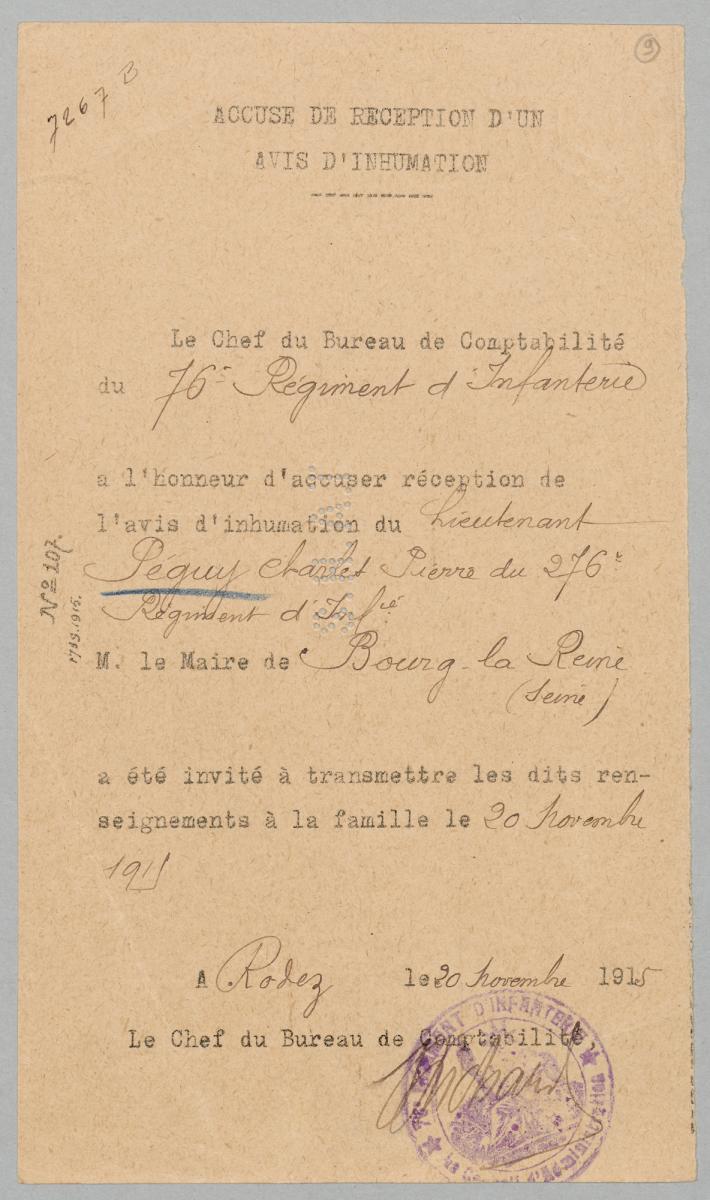 9
7267 B
ACCUSE DE RECEPTION D'UN
AVIS D'INHUMATION
Le Chef du Bureau de Comptabilité
du 76e Régiment d'Infanterie
a l'honneur d'accuser réception de
l'avis d'inhumation du Lieutenant
Péguy Charles Pierre du 276e
Régiment d'Infie
M. le Maire de Bourg-la Reine
(Seine)
a été invité à transmettre les dits ren-
seignements à la famille le 20 novembre
1915
No 107.
1789.1915.
A Rodez le 20 novembre 1915
Le Chef du Bureau de Comptabilité,
76e REGIMENT D'INFANTERIE